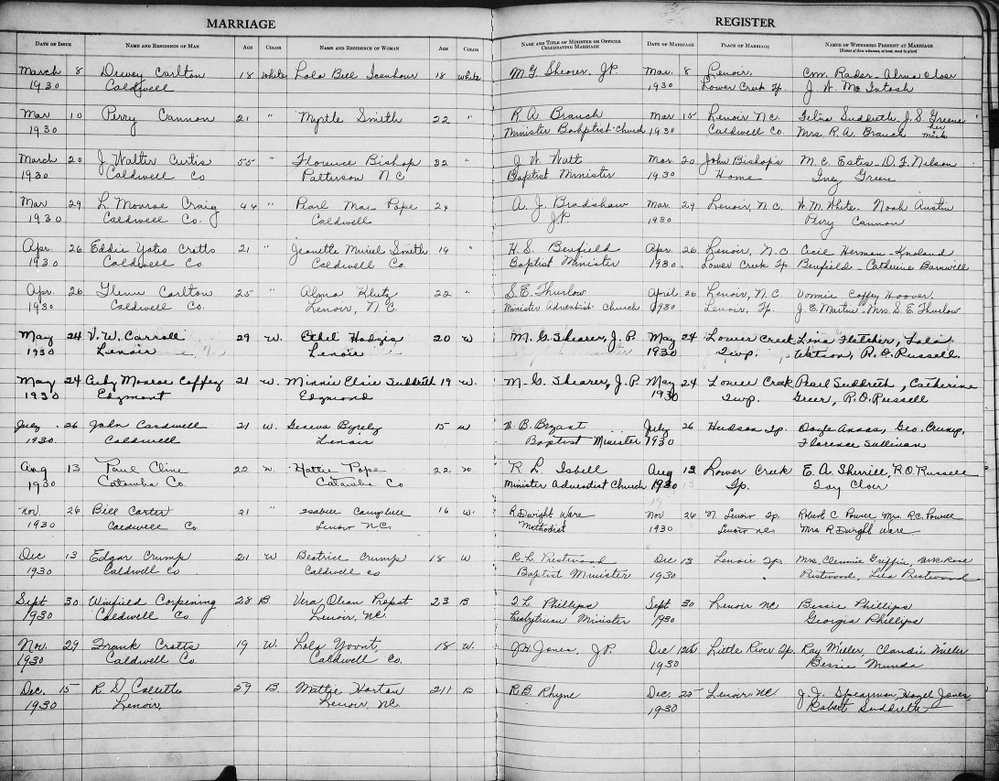 MARRIAGE REGISTER
DATE OF ISSUE NAME AND RESIDENCE OF MAN AGE COLOR NAME AND RESIDENCE OF WOMAN AGE COLOR NAME AND TITLE OF MINISTER OR OFFICER CELEBRATING MARRIAGE DATE OF MARRIAGE PLACE OF MARRIAGE NAMES OF WITNESSES PRESENT AT MARRIAGE
March 8 Dewey Carlton 18 White Lola Bell Isenhour 18 White M. G. Shearer, JP Mar. 8 Lenoir, Rader - Alma Cloer
1930 Caldwell 1930 Lower Creek Tp. J. W. McIntosh
Mar 10 Perry Cannon 21 " Myrtle Smith 22 " R A Branch Mar 15 Lenoir N.C. Suddreth - J. S. Greene
1930 Minister Bahptist Church 1930 Caldwell Co. Mrs. R. A. Branch her mark
March 20 J. Walter Curtis 55 " Florence Bishop 32 " J. W. Watt Mar. 20 John Bishop's M. C. Estes - D. F. Nelson
1930 Caldwell Co Patterson N.C Baptist Minister 1930 Home Iney Green
Mar 29 L. Monroe Craig 44 " Pearl Mae Pope 29 " A. J. Bradshaw Mar. 29 Lenoir, N.C. W. M. White - Noah Austin
1930 Caldwell Co. Caldwell JP 1930 Perry Cannon
Apr. 26 Eddie Yates Cretts 21 " Jeanette Muriel Smith 19 " H. S. Benfield Apr. 26 Lenoir, N.C Cecil Herman - Knoland
1930 Caldwell Co Caldwell Co. Baptist Minister 1930. Lower Creek Tp. Benfield - Catherine Barnwell
Apr. 26 Glenn Carlton 25 " Alma Klutz 22 " S. E. Thurlow April 26 Lenoir, N.C. Vonnie Coffey Hoover.
1930 Caldwell Co. Lenoir, N.C. Minister Adventist Church 1930 Lenoir, Tp. J. E. Martin - Mrs S. E. Thurlow
May 24 V. W. Carroll 29 W. Ethel Hodges 20 W M. G. Shearer, J. P. May 24 Lower Creek Lona Fletcher, Lola
1930 Lenoir Lenoir 1930 Twp. Watson, R. O. Russell.
May 24 Monroe Coffey 21 W. Minnie Elsie Suddreth 19 W. M. G. Shearer, J. P. May 24 Lower Creek Pearl Suddreth, Catherine
1930 Edgmont Edgmond 1930 Twp. Greer, R. O. Russell
July 26 John Cardwell 21 W. Geneva Byrely 15 W W. B. Bryant July 26 Hudson Tp. Doyle Annas, Geo. Crump,
1930. Caldwell Lenoir Baptist Minister 1930 Florence Sullivan
Aug 13 Paul Cline 22 W. Hattie Pope 22 W. R. L. Isbell Aug 13 Lower Creek E. A. Sherrill, R. O. Russell
1930 Catawba Co. Catawba Co Minister Adventist Church 1930 Tp. Cloer
Nov. 26 Bill Carter 21 " Isabell Campbell 16 W. R. Dwight Ware Nov 26 N. Lenoir Tp. Robert C Powell, Mrs. R. C. Powell
1930 Caldwell Co Lenoir N.C. Methodist 1930 Lenoir N.C. Mrs R Dwight Ware.
Dec 13 Edgar Crump 21 W Beatrice Crump 18 W R. L. Prestwood Dec 13 Lenoir Tp. Mrs. Clennie Griffin, Rose
1930 Caldwell Co Caldwell Co Baptist Minister 1930 Prestwood, Lila Prestwood
Sept 30 Winfield Corpening 28 B Vera Olean Propst 23 B T. L. Phillips Sept 30 Lenoir NC Bessie Phillips
1930 Caldwell Co Lenoir, NC. Presbyterian Minister 1930 Georgia Phillips
Nov. 29 Frank Crotts 19 W. Lola Yount, 18 W. J. H. Jones, J.P. Dec Little River Tp. Ray Miller, Claudie Miller
1930 Caldwell Co. Caldwell Co. 1930 Bessie Munda
Dec. 15 R. D. 59 B. Mattie Horton B R. B. Rhyne Dec. 25 Lenoir, NC J. J. Spearman, Hazel Jones,
1930 Lenoir, Lenoir, NC 1930 Robert Suddreth